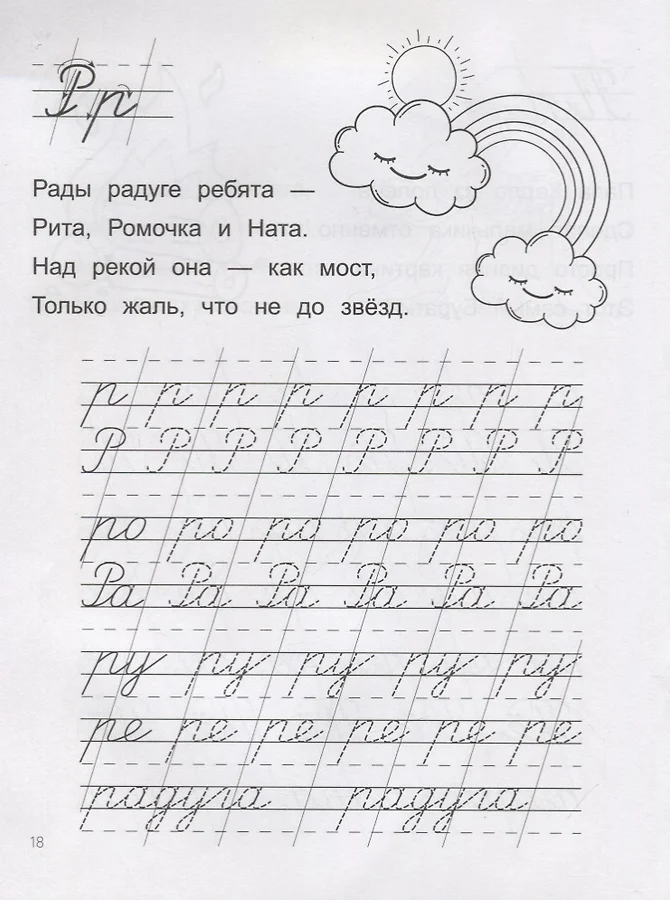 Рр
Рады радуге ребята —
Рита, Ромочка и Ната.
Над рекой она — как мост,
Только жаль, что не до звёзд.
р р р р р р р р
Р Р Р Р Р Р Р Р
ро ро ро ро ро ро
Ра Ра Ра Ра Ра Ра
ру ру ру ру ру
ре ре ре ре ре ре
радуга радуга
18